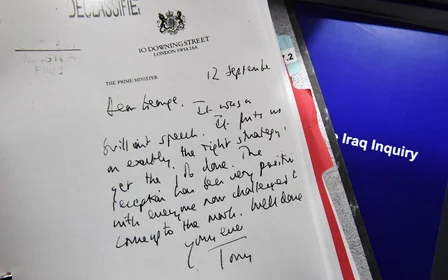 DECLASSIFIED
10 DOWNING STREET
LONDON SW1A 2AA
THE PRIME MINISTER
12 September
Dear George. It was a
brilliant speech. It puts us
on exactly the right strategy to
get the job done. The
reception has been very positive
with everyone now challenged to
come up to the mark. Well done
Yours ever
Tony
7.2
e Iraq Inquiry